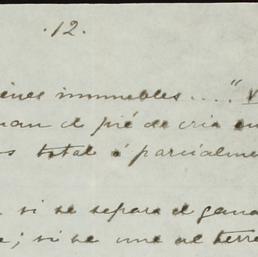 .12.
ienes inmuebles....."
man el pié de cria en
os total ó parcialme
si se separa el gana
e; si se une al terre